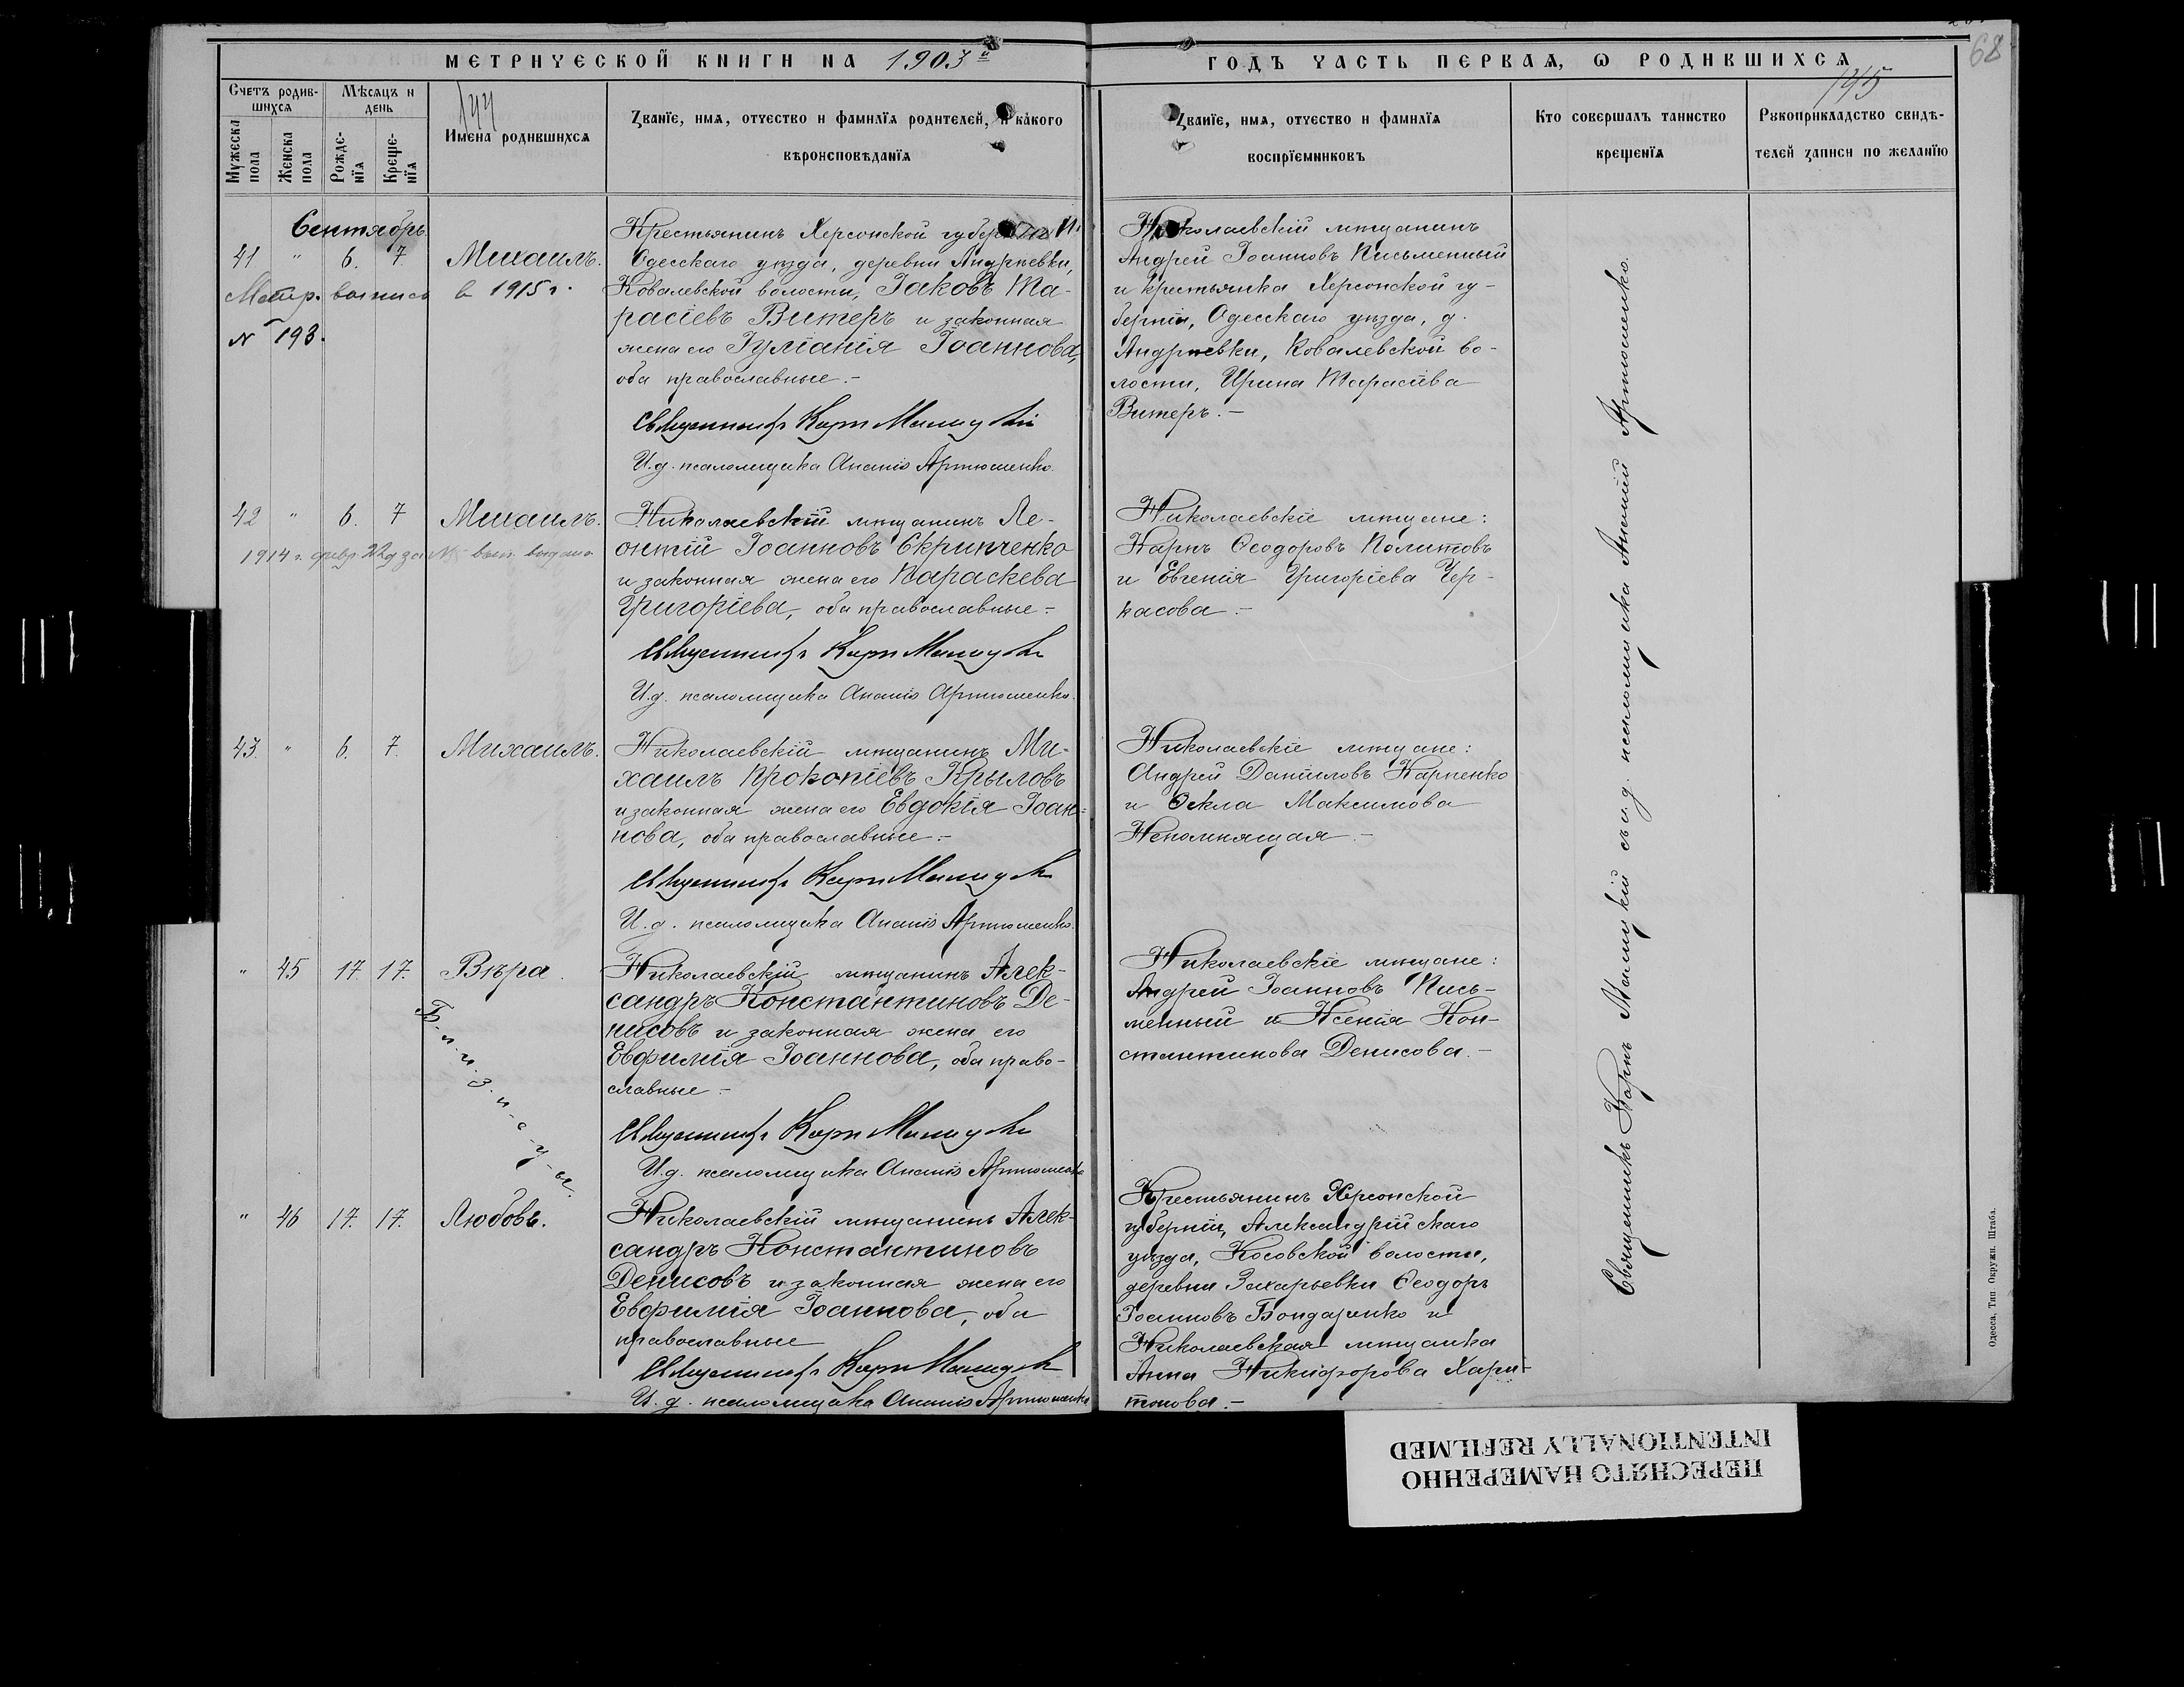 МЕТРИЧЕСКОЙ КНИГИ НА 1903й
ГОДЪ ЧАСТЬ ПЕРВАЯ, Ѡ РОДИВШИХСЯ
68
144
145
Счетъ родив-
шихся
Мѣсяцъ и
день
Мужеска
пола
Женска
пола
Рожде-
нїя
Креще-
нїя
Имена родившихся
Званїе, имя, отчество и фамилїя родителей, и какого
вѣроисповѣданїя
Званїе, имя, отчество и фамилїя
воспрїемниковъ
Кто совершалъ таинство
крещенїя
Рукоприкладство свидѣ-
телей записи по желанїю
Сентябрь
41 " 6. 7 Михаилъ.
Метр. выпись в 1915 г.
№ 193.
Крестьянинъ Херсонской губерніи
Одесскаго уѣзда, деревни Андреевки,
Ковалевской волости, Іаковъ Та-
расіевъ Витеръ и законная
жена его Іуліанія Іоаннова,
оба православные.-
Священникъ Карп
И.д. псаломщика Ананій Артюшенко
Николаевскій мѣщанинъ
Андрей Іоанновъ Письменный
и крестьянка Херсонской гу-
берніи, Одесскаго уѣзда, д.
Андреевки, Ковалевской во-
лости, Ирина Тарасіева
Витеръ.-
42 " 6. 7 Михаилъ.
1914 г. февр. 22 д за № вып. выдана
Николаевскій мѣщанинъ Ле-
онтій Іоанновъ Скрипченко
и законная жена его Параскева
Григоріева, оба православные-
Священникъ Карп
И.д. псаломщика Ананій Артюшенко.
Николаевскіе мѣщане:
Карпъ Ѳеодоровъ Политовъ
и Евгенія Григоріева Чер-
касова.-
43. " 6. 7. Михаилъ.
Николаевскій мѣщанинъ Ми-
хаилъ Прокопіевъ Крыловъ
и законная жена его Евдокія Іоан-
нова, оба православные.-
Священникъ Карп
И.д. псаломщика Ананій Артюшенко.
Николаевскіе мѣщане:
Андрей Даниловъ Карпенко
и Ѳекла Максимова
Непомнящая.-
" 45 17. 17. Вѣра.
Б-л-и-з-н-е-ц-ы.
Николаевскій мѣщанинъ Алек-
сандръ Константиновъ Де-
нисовъ и законная жена его
Евфимія Іоаннова, оба право-
славные-
Священникъ Карп
И.д. псаломщика Ананій Артюшенко
Николаевскіе мѣщане:
Андрей Іоанновъ Пись-
менный и Ксенія Кон-
стантинова Денисова.-
" 46 17. 17. Любовь.
Николаевскій мѣщанинъ Алек-
сандръ Константиновъ
Денисовъ и законная жена его
Евфимія Іоаннова, оба
православные
Священникъ Карп
И.д. псаломщика Ананій Артюшенко
Крестьянинъ Херсонской
губерніи, Александрійскаго
уѣзда, Косовской волости,
деревни Захарьевки Ѳеодоръ
Іоанновъ Бондаренко и
Николаевская мѣщанка
Анна Никифорова Хари-
тонова.-
Священникъ Карпъ съ и.д. псаломщика Ананій Артюшенко.
Одесса. Тип. Окружн. Штаба.
ПЕРЕСНЯТО НАМЕРЕННО
INTENTIONALLY REFILMED